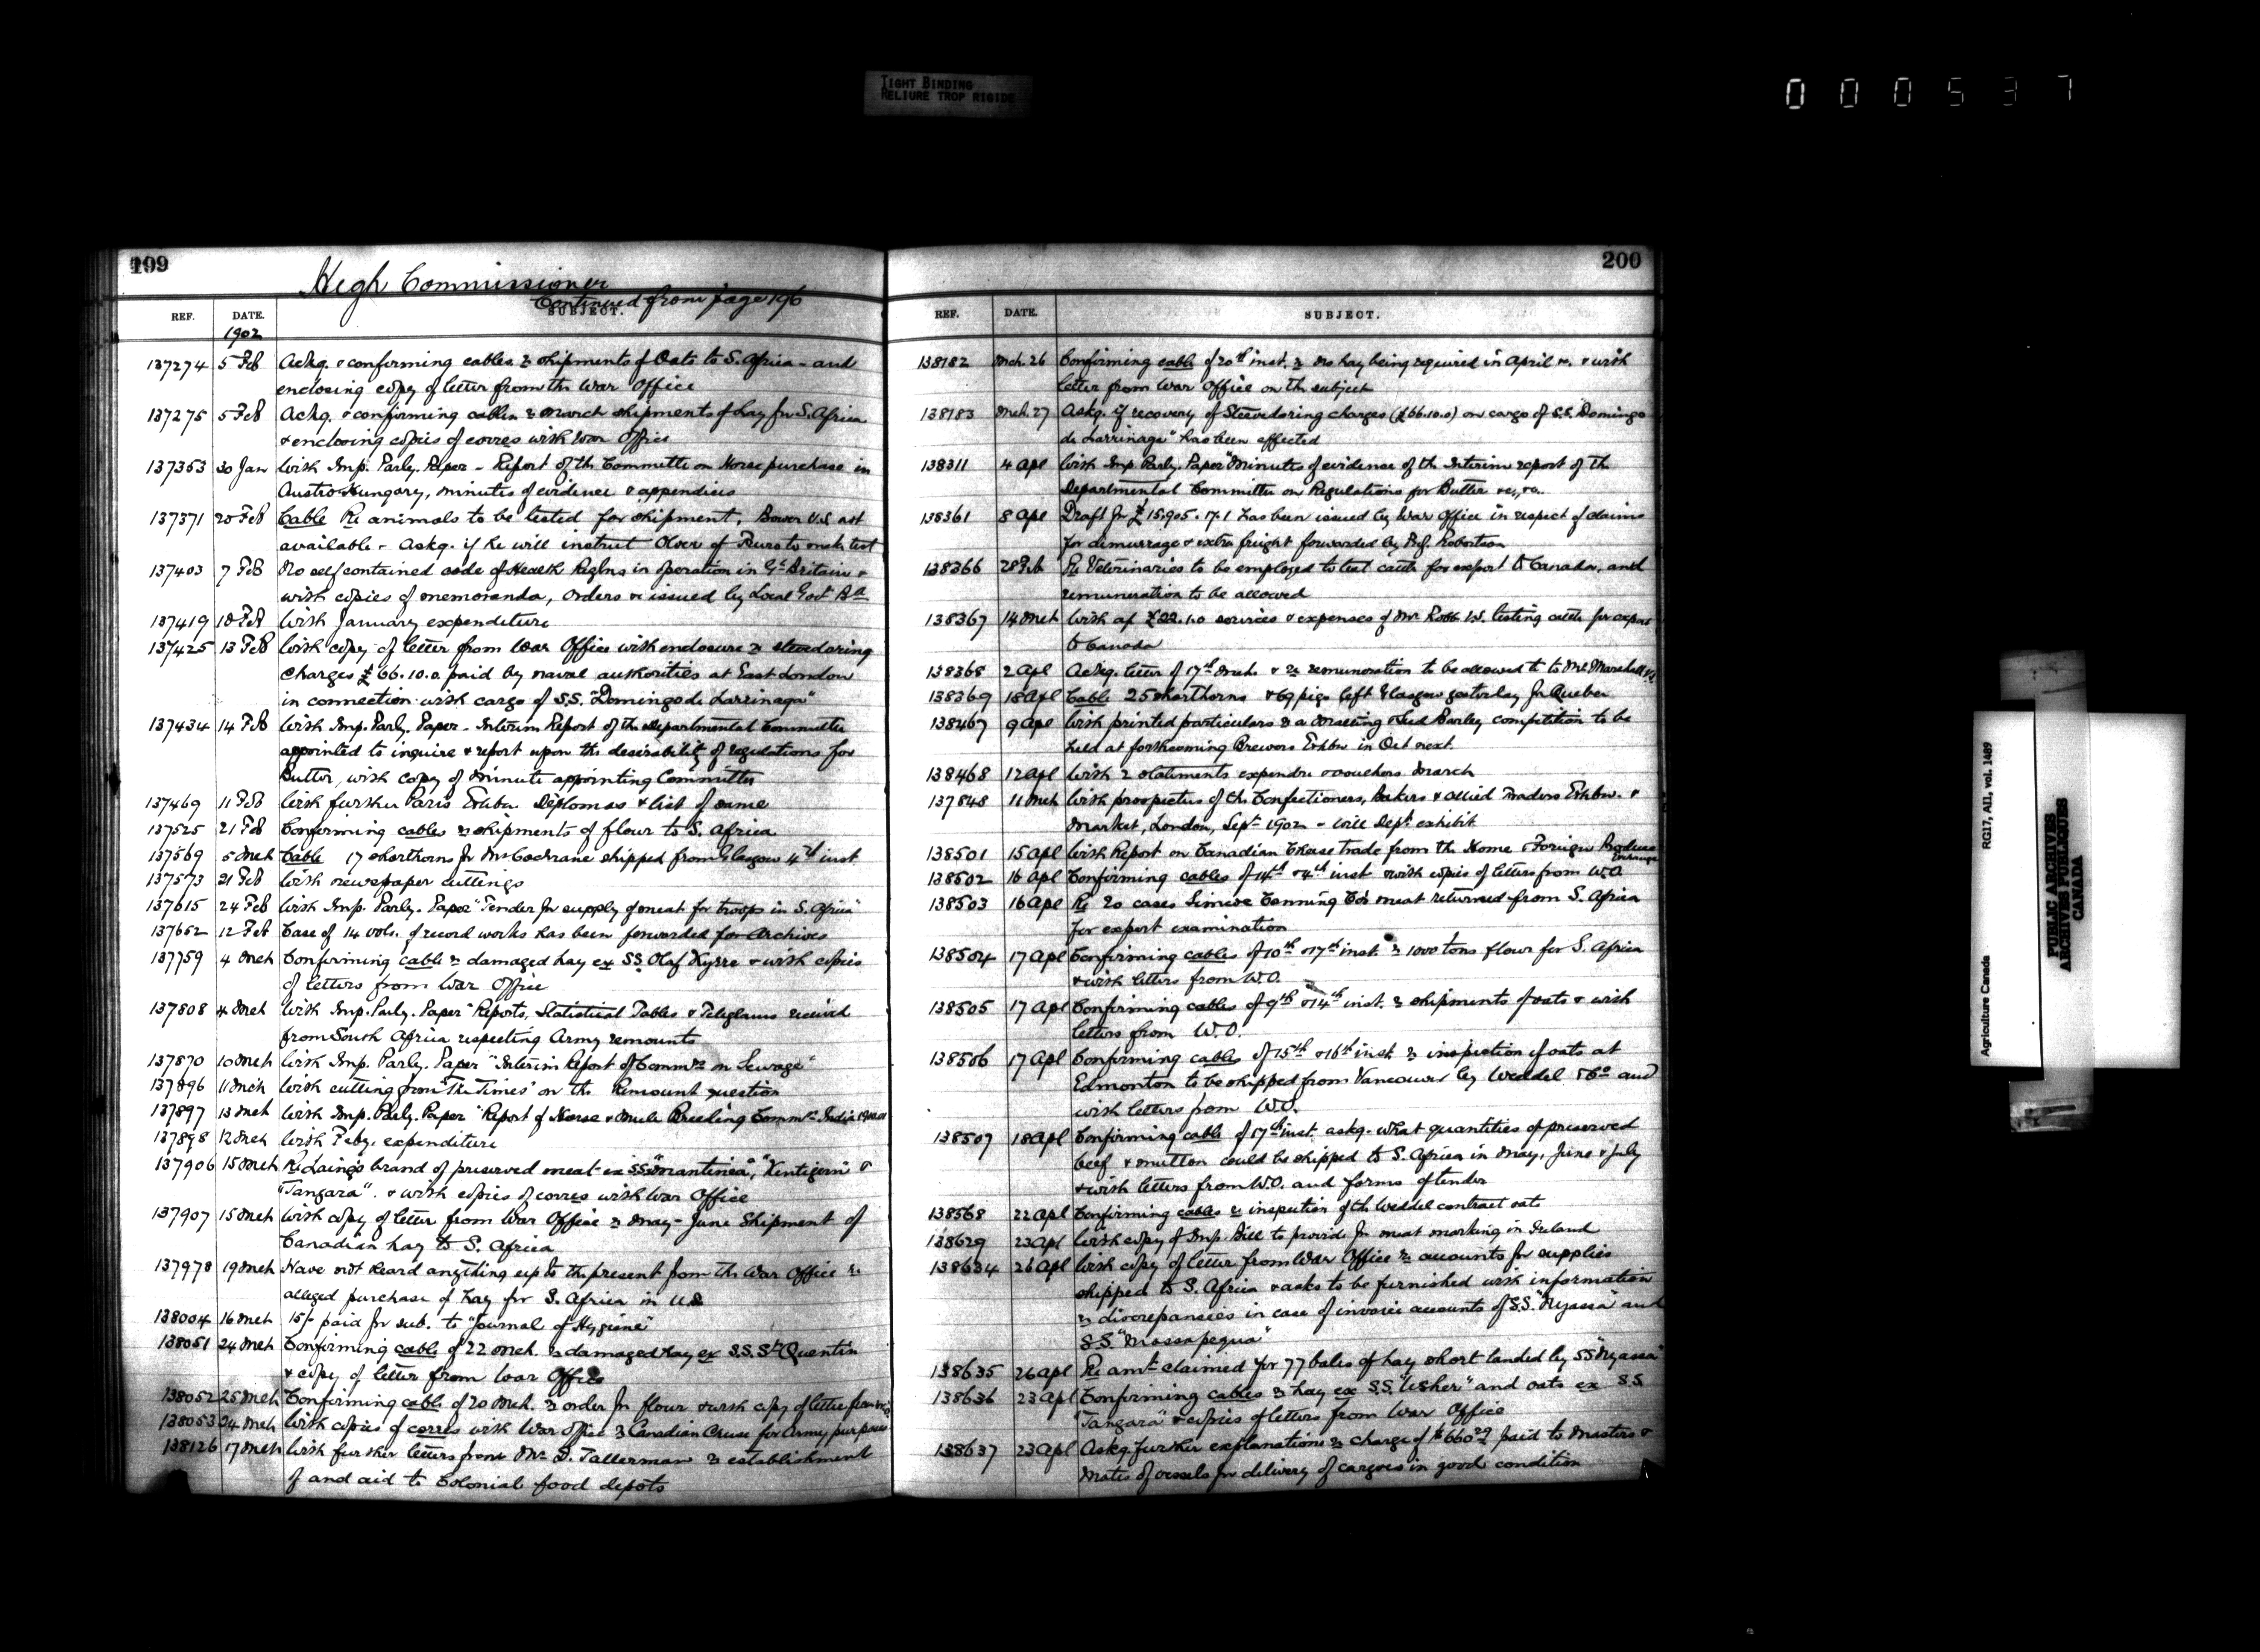 TIGHT BINDING
RELIURE TROP RIGIDE
000537
199
High Commissioner
Continued from page 196
REF. DATE. SUBJECT.
1902
137274 5 Feb Ackg. & confirming cables re shipments of Oats to S. Africa - and
enclosing copy of letter from the War Office
137275 5 Feb Ackg. & confirming cables re March shipments of hay for S. Africa
& enclosing copies of corres with War Office
137353 30 Jan With Imp. Parly. Paper - Report of the Committee on Horse purchase in
Austro-Hungary, minutes of evidence & appendices
137371 20 Feb Cable Re animals to be tested for shipment, Bower V.S. not
available - Askg. if he will instruct Olver of to make test
137403 7 Feb No self contained code of Health Regtns in operation in Gt Britain &
with copies of memoranda, Orders &c issued by Local Govt Bd
137419 18 Feb With January expenditure
137425 13 Feb With copy of letter from War Office with enclosure re stevedoring
charges £66.10.0 paid by naval authorities at East London
in connection with cargo of S.S. "Domingo de Larrinaga"
137434 14 Feb With Imp. Parly. Paper - Interim Report of the Departmental Committee
appointed to inquire & report upon the desirability of regulations for
Butter, with copy of Minute appointing Committee
137469 11 Feb With further Paris Exhbn Diplomas & list of same
137525 21 Feb Confirming cables re shipments of flour to S. Africa
137569 5 Mch Cable 17 shorthorns for Mr Cochrane shipped from Glasgow 4th inst
137573 21 Feb With newspaper cuttings
137615 24 Feb With Imp. Parly. Paper "Tender for supply of meat for troops in S. Africa"
137652 12 Feb Case of 14 vols. of record works has been forwarded for Archives
137759 4 Mch Confirming cable re damaged hay ex SS. Olaf Kyrre & with copies
of letters from War Office
137808 4 Mch With Imp. Parly. Paper "Reports, Statistical Tables & Telegrams received
from South Africa respecting Army remounts
137870 10 Mch With Imp. Parly. Paper "Interim Report of Commrs on Sewage"
137896 11 Mch With cutting from "The Times" on the Remount question
137897 13 Mch With Imp. Parly. Paper "Report of Horse & Mule Breeding Commn India 1900.01
137898 12 Mch With Feby. expenditure
137906 15 Mch Re Laing's brand of preserved meat ex SS. "Mantinea", "Kentigern" &
"Tangara". & with copies of corres with War Office
137907 15 Mch With copy of letter from War Office re May - June Shipment of
Canadian hay to S. Africa
137978 19 Mch Have not heard anything up to the present from the War Office re
alleged purchase of hay for S. Africa in U.S.
138004 16 Mch 15/- paid for sub. to "Journal of Hygiene"
138051 24 Mch Confirming cable of 22 Mch. re damaged hay ex S.S. St Quentin
& copy of letter from War Office
138052 25 Mch Confirming cable of 20 Mch. re order for flour & with copy of letter from W.O.
138053 24 Mch With copies of corres with War Office re Canadian Cheese for Army purposes
138126 17 Mch With further letters from Mr. D. Tallerman re establishment
of and aid to Colonial food depots
200
REF. DATE. SUBJECT.
138182 Mch. 26 Confirming cable of 20th inst. re no hay being required in April &c. & with
letter from War Office on the subject
138183 Mch. 27 Askg. if recovery of Stevedoring charges (£66.10.0) on cargo of S.S. Domingo
de Larrinaga" has been effected
138311 4 Apl With Imp. Parly. Paper "Minutes of evidence of the Interim report of the
Departmental Committee on Regulations for Butter &c., &c.
138361 8 Apl Draft for £15,905.17.1 has been issued by War Office in respect of claims
for demurrage & extra freight forwarded by Prof. Robertson
138366 28 Feb Re Veterinaries to be employed to test cattle for export to Canada, and
remuneration to be allowed
138367 14 Mch With a/c £22.1.0 services & expenses of Mr Robb V.S. testing cattle for export
to Canada
138368 2 Apl Ackg. letter of 17th Mch. & re remuneration to be allowed to Mr. Marshall V.S.
138369 18 Apl Cable 25 shorthorns & 69 pigs left Glasgow yesterday for Quebec
138467 9 Apl With printed particulars re a Malting & Seed Barley competition to be
held at forthcoming Brewers Exhbn in Oct next.
138468 12 Apl With 2 statements expendre & vouchers March
137848 11 Mch With prospectus of the Confectioners, Bakers & Allied Traders Exhbn. &
Market, London, Sept 1902 - will Dept exhibit
138501 15 Apl With Report on Canadian Cheese trade from the Home & Foreign Produce
Exchange
138502 16 Apl Confirming cables of 14th & 4th inst & with copies of letters from W.O.
138503 16 Apl Re 20 cases Simcoe Canning Co's meat returned from S. Africa
for expert examination
138504 17 Apl Confirming cables of 10th & 17th inst. re 1000 tons flour for S. Africa
& with letters from W.O.
138505 17 Apl Confirming cables of 9th & 14th inst. re shipments of oats & with
letters from W.O.
138506 17 Apl Confirming cables of 15th & 16th inst re inspection of oats at
Edmonton to be shipped from Vancouver by Weddel & Co and
with letters from W.O.
138507 18 Apl Confirming cable of 17th inst. askg. what quantities of preserved
beef & mutton could be shipped to S. Africa in May, June & July
& with letters from W.O. and forms of tender
138568 22 Apl Confirming cables re inspection of the Weddel contract oats
138629 23 Apl With copy of Imp. Bill to provide for meat marking in Ireland
138634 26 Apl With copy of letter from War Office re accounts for supplies
shipped to S. Africa & asks to be furnished with information
re discrepancies in case of invoice accounts of S.S. "Nyassa" and
S.S. "Massapequa"
138635 26 Apl Re amt claimed for 77 bales of hay short landed by SS "Nyassa"
138636 23 Apl Confirming cables re hay ex S.S. "Usher" and oats ex S.S.
"Tangara" & copies of letters from War Office
138637 23 Apl Askg. further explanations re charge of $660.29 paid to Masters &
Mates of vessels for delivery of cargoes in good condition
Agriculture Canada RG17, A11, vol. 1489
PUBLIC ARCHIVES
ARCHIVES PUBLIQUES
CANADA